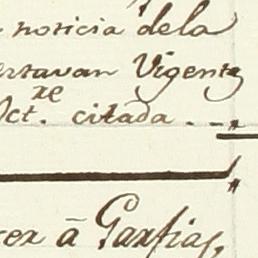 noticia dela
estavan Vigente
Oct.re citada.
cer â Garfias,